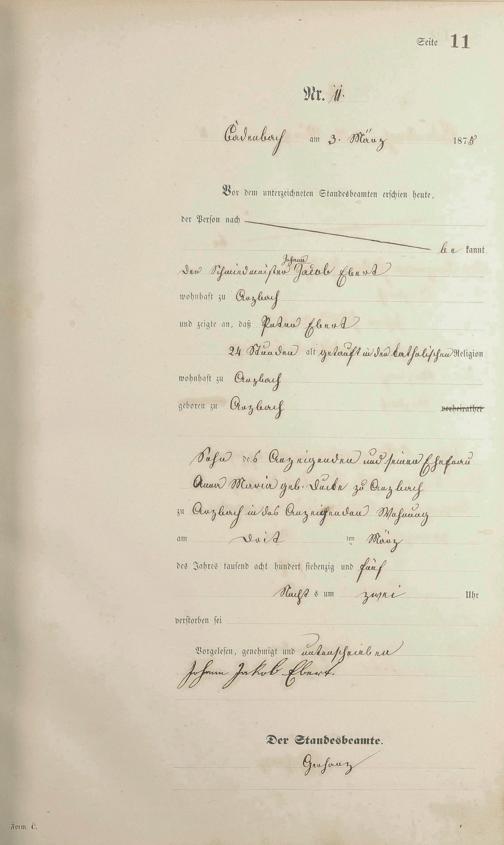 Seite 11
Nr. 11.
Cadenbach am 3. März 1875
Vor dem unterzeichneten Standesbeamten erschien heute,
der Person nach
be kannt
der Schmiedmeister Johann Jacob Ebert
wohnhaft zu Arzbach
und zeigte an, daß Peter Ebert
24 Stunden alt getauft in der katholischen Religion
wohnhaft zu Arzbach
geboren zu Arzbach verheirathet
Sohn des Anzeigenden und seiner Ehefrau
Anna Maria geb. zu Arzbach
zu Arzbach in des Anzeigenden Wohnung
am Drit ten März
des Jahres tausend acht hundert siebenzig und fünf
Nacht s um zwei Uhr
verstorben sei
Vorgelesen, genehmigt und unterschrieben
Johann Jakob Ebert.
Der Standesbeamte.
Form. C.